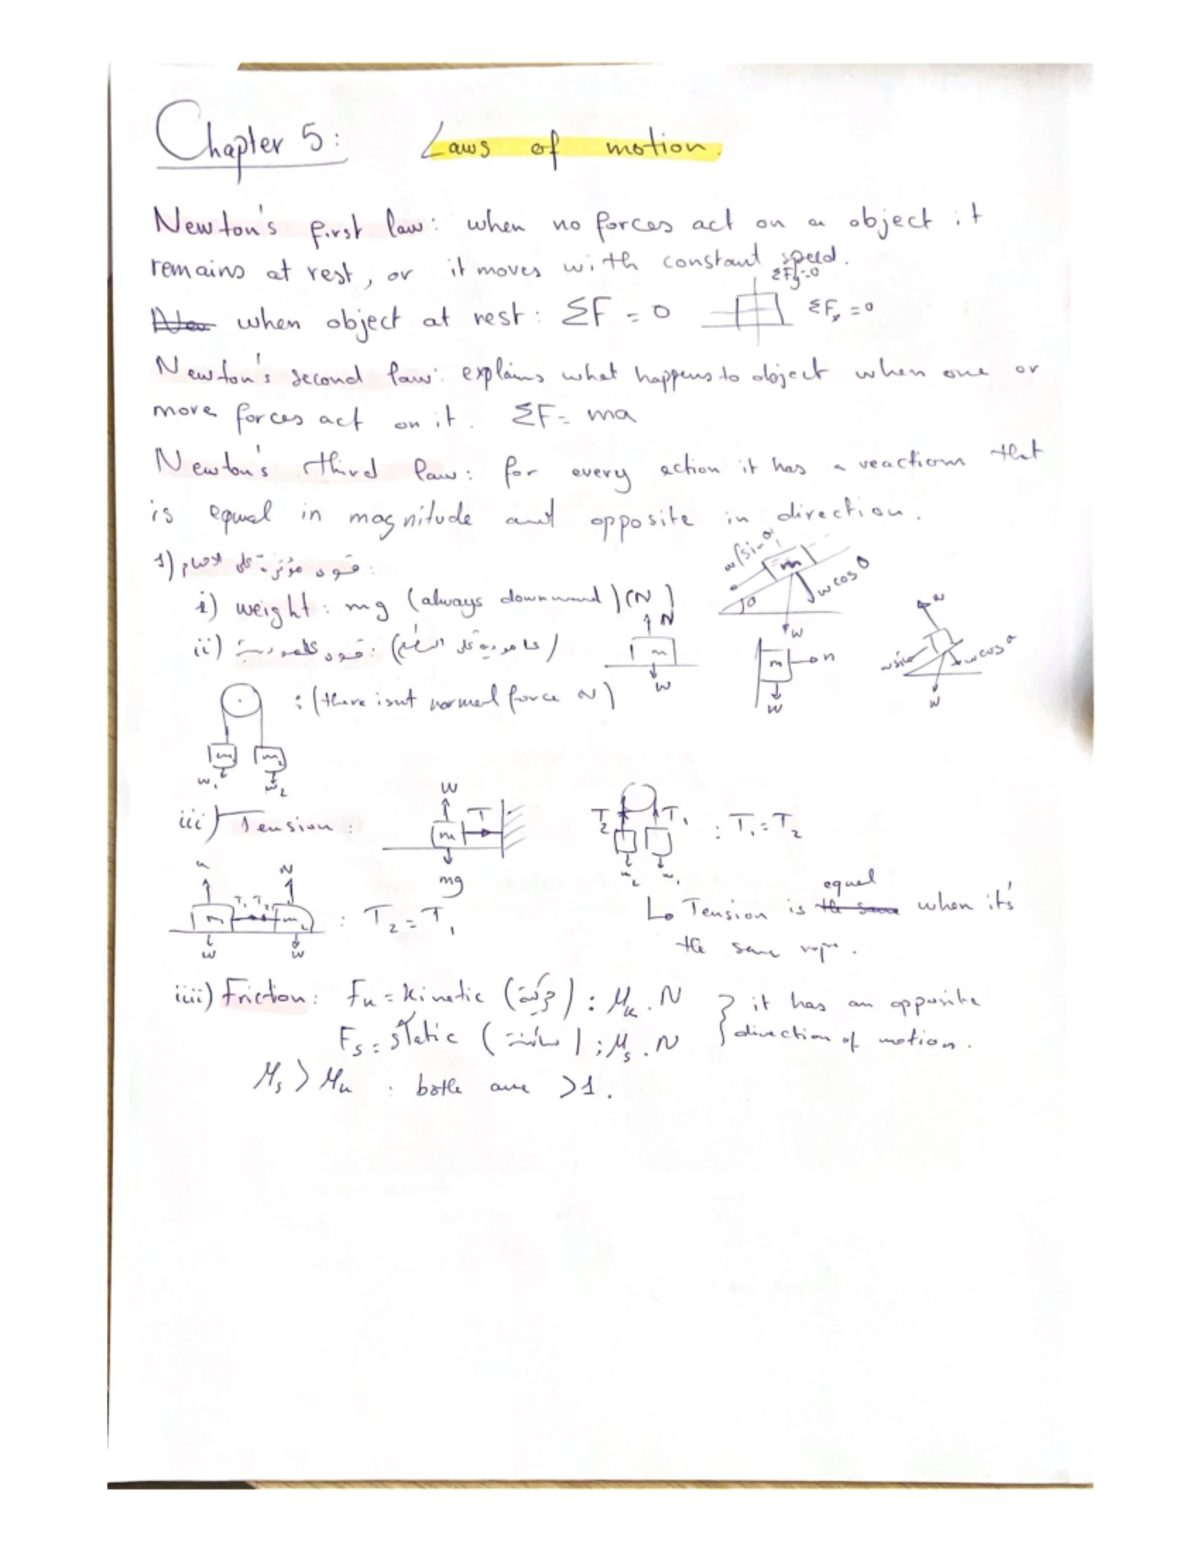 Chapter 5: Laws of motion.
Newton's first law: when no forces act on a object it
remains at rest, or it moves with constant speed.
when object at rest: ΣF = 0 ΣFy=0 ΣFx = 0
Newton's second law: explains what happens to object when one or
more forces act on it. ΣF= ma
Newton's third law: for every action it has a reactiom that
is equal in magnitude and opposite in direction.
1) قوى مؤثرة على الاجسام:
w(sinθ) m w cos θ θ w
i) weight: mg (always downward) (N)
N m w
ii) (عامودية على السطح):
m n w
w cos w
: (there isnt normal force N)
m m w1 w2
iii) Tension:
w m T mg
T2 T1 : T1 = T2
N T1 T2 m m w w : T2 = T1
↳ Tension is the same equal when it's
the same rope.
iiii) Friction: Fk = kinetic (حركية) : Mk . N } it has an opposite
Fs = static (ساكنة) ; Ms . N } direction of motion.
Ms > Mk : both are >1.